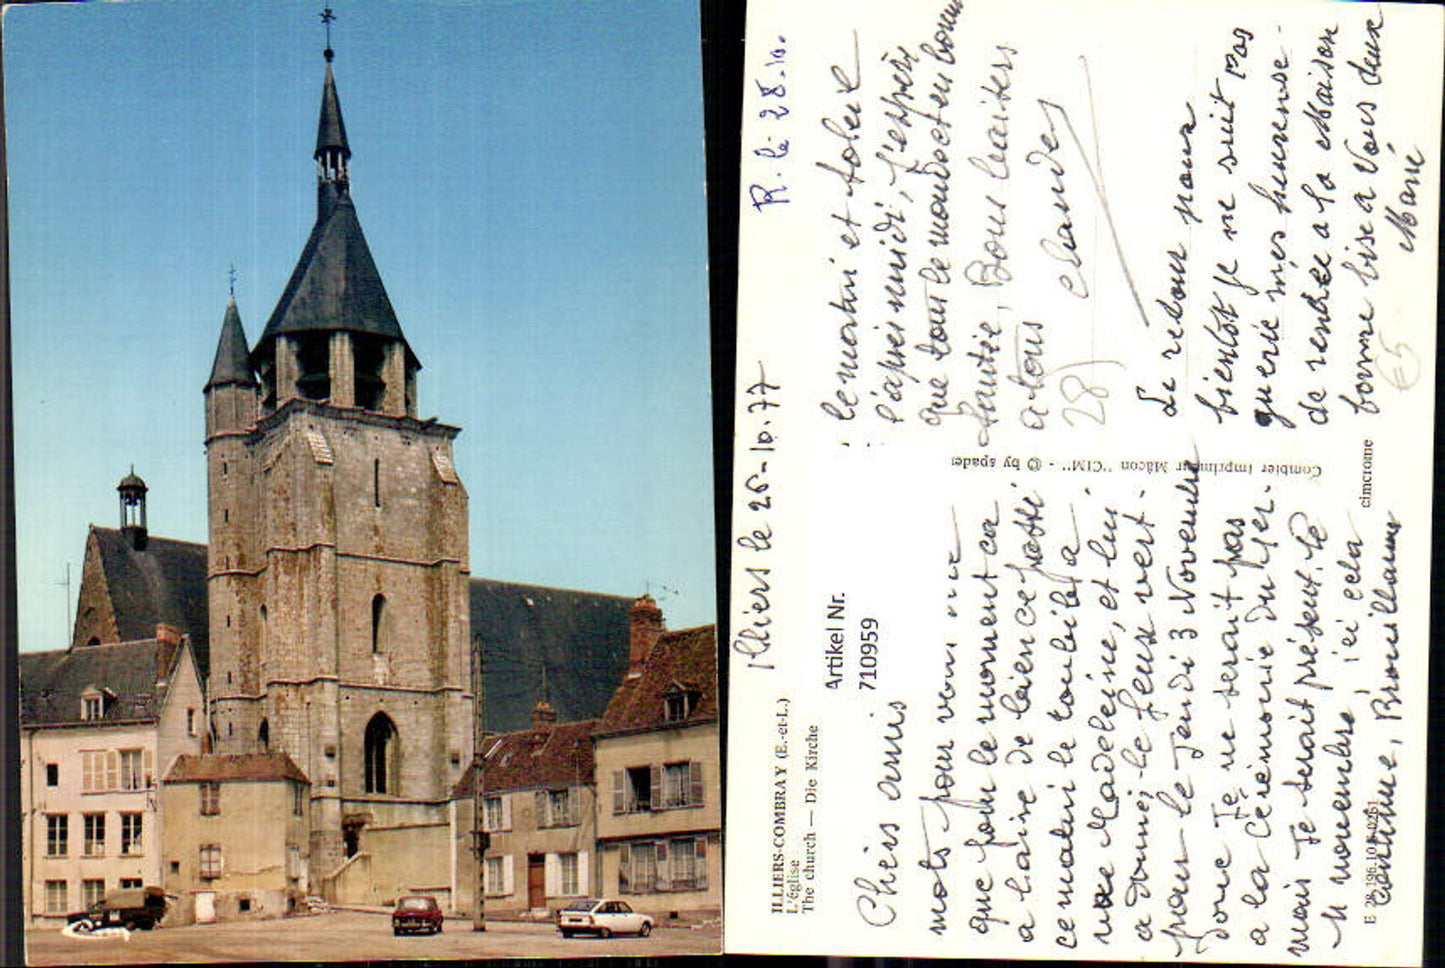 Cim
ILLIERS-COMBRAY (E.-et-L.)
L'église
The church — Die Kirche
Artikel Nr.
710959
Illiers le 25-10.77
R. le 28.10.
Chers amis
mots pour vous
que pour le moment ca
a l'aire de bien ce passé
ce matin le toubib a
vue Madeleine, et lui
a donné, le feux vert.
pour le Jeudi 3 Novembre
donc Je ne serait pas
a la Cérémonie du 1er.
mais Je serait présent. le
11 novembre ici cela
continue, Brouillard
le matin et soleil
l'après midi, J'espère
que tout le monde et en bonne
santée, Bons baisers
a tous
Claude
28
Le retour pour
bientôt je ne suit pas
guerie mes heureuse
de rentrée a la Maison
bonne bise a Vous deux
E5
Combier imprimeur Mâcon "CIM" - © by spadem
cimcrome